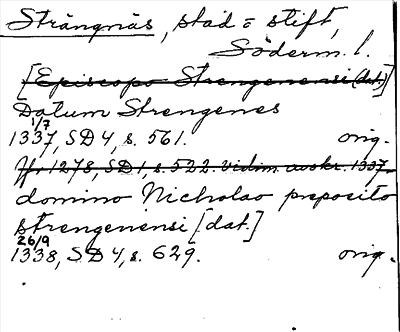 Strängnäs, stad o stift,
Söderm. l.
[Episcopo Strengenensi (dat.)]
Datum Strengenes
1/7
1337, SD 4, s. 561. orig.
1278, SD 1, s. 522. vidim. avskr. 1337.
domino Nicholao preposito
strengenensi [dat.]
26/9
1338, SD 4, s. 629. orig.